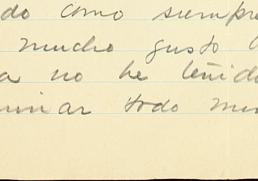 do como siempre
mucho gusto
a no he tenido
inar todo